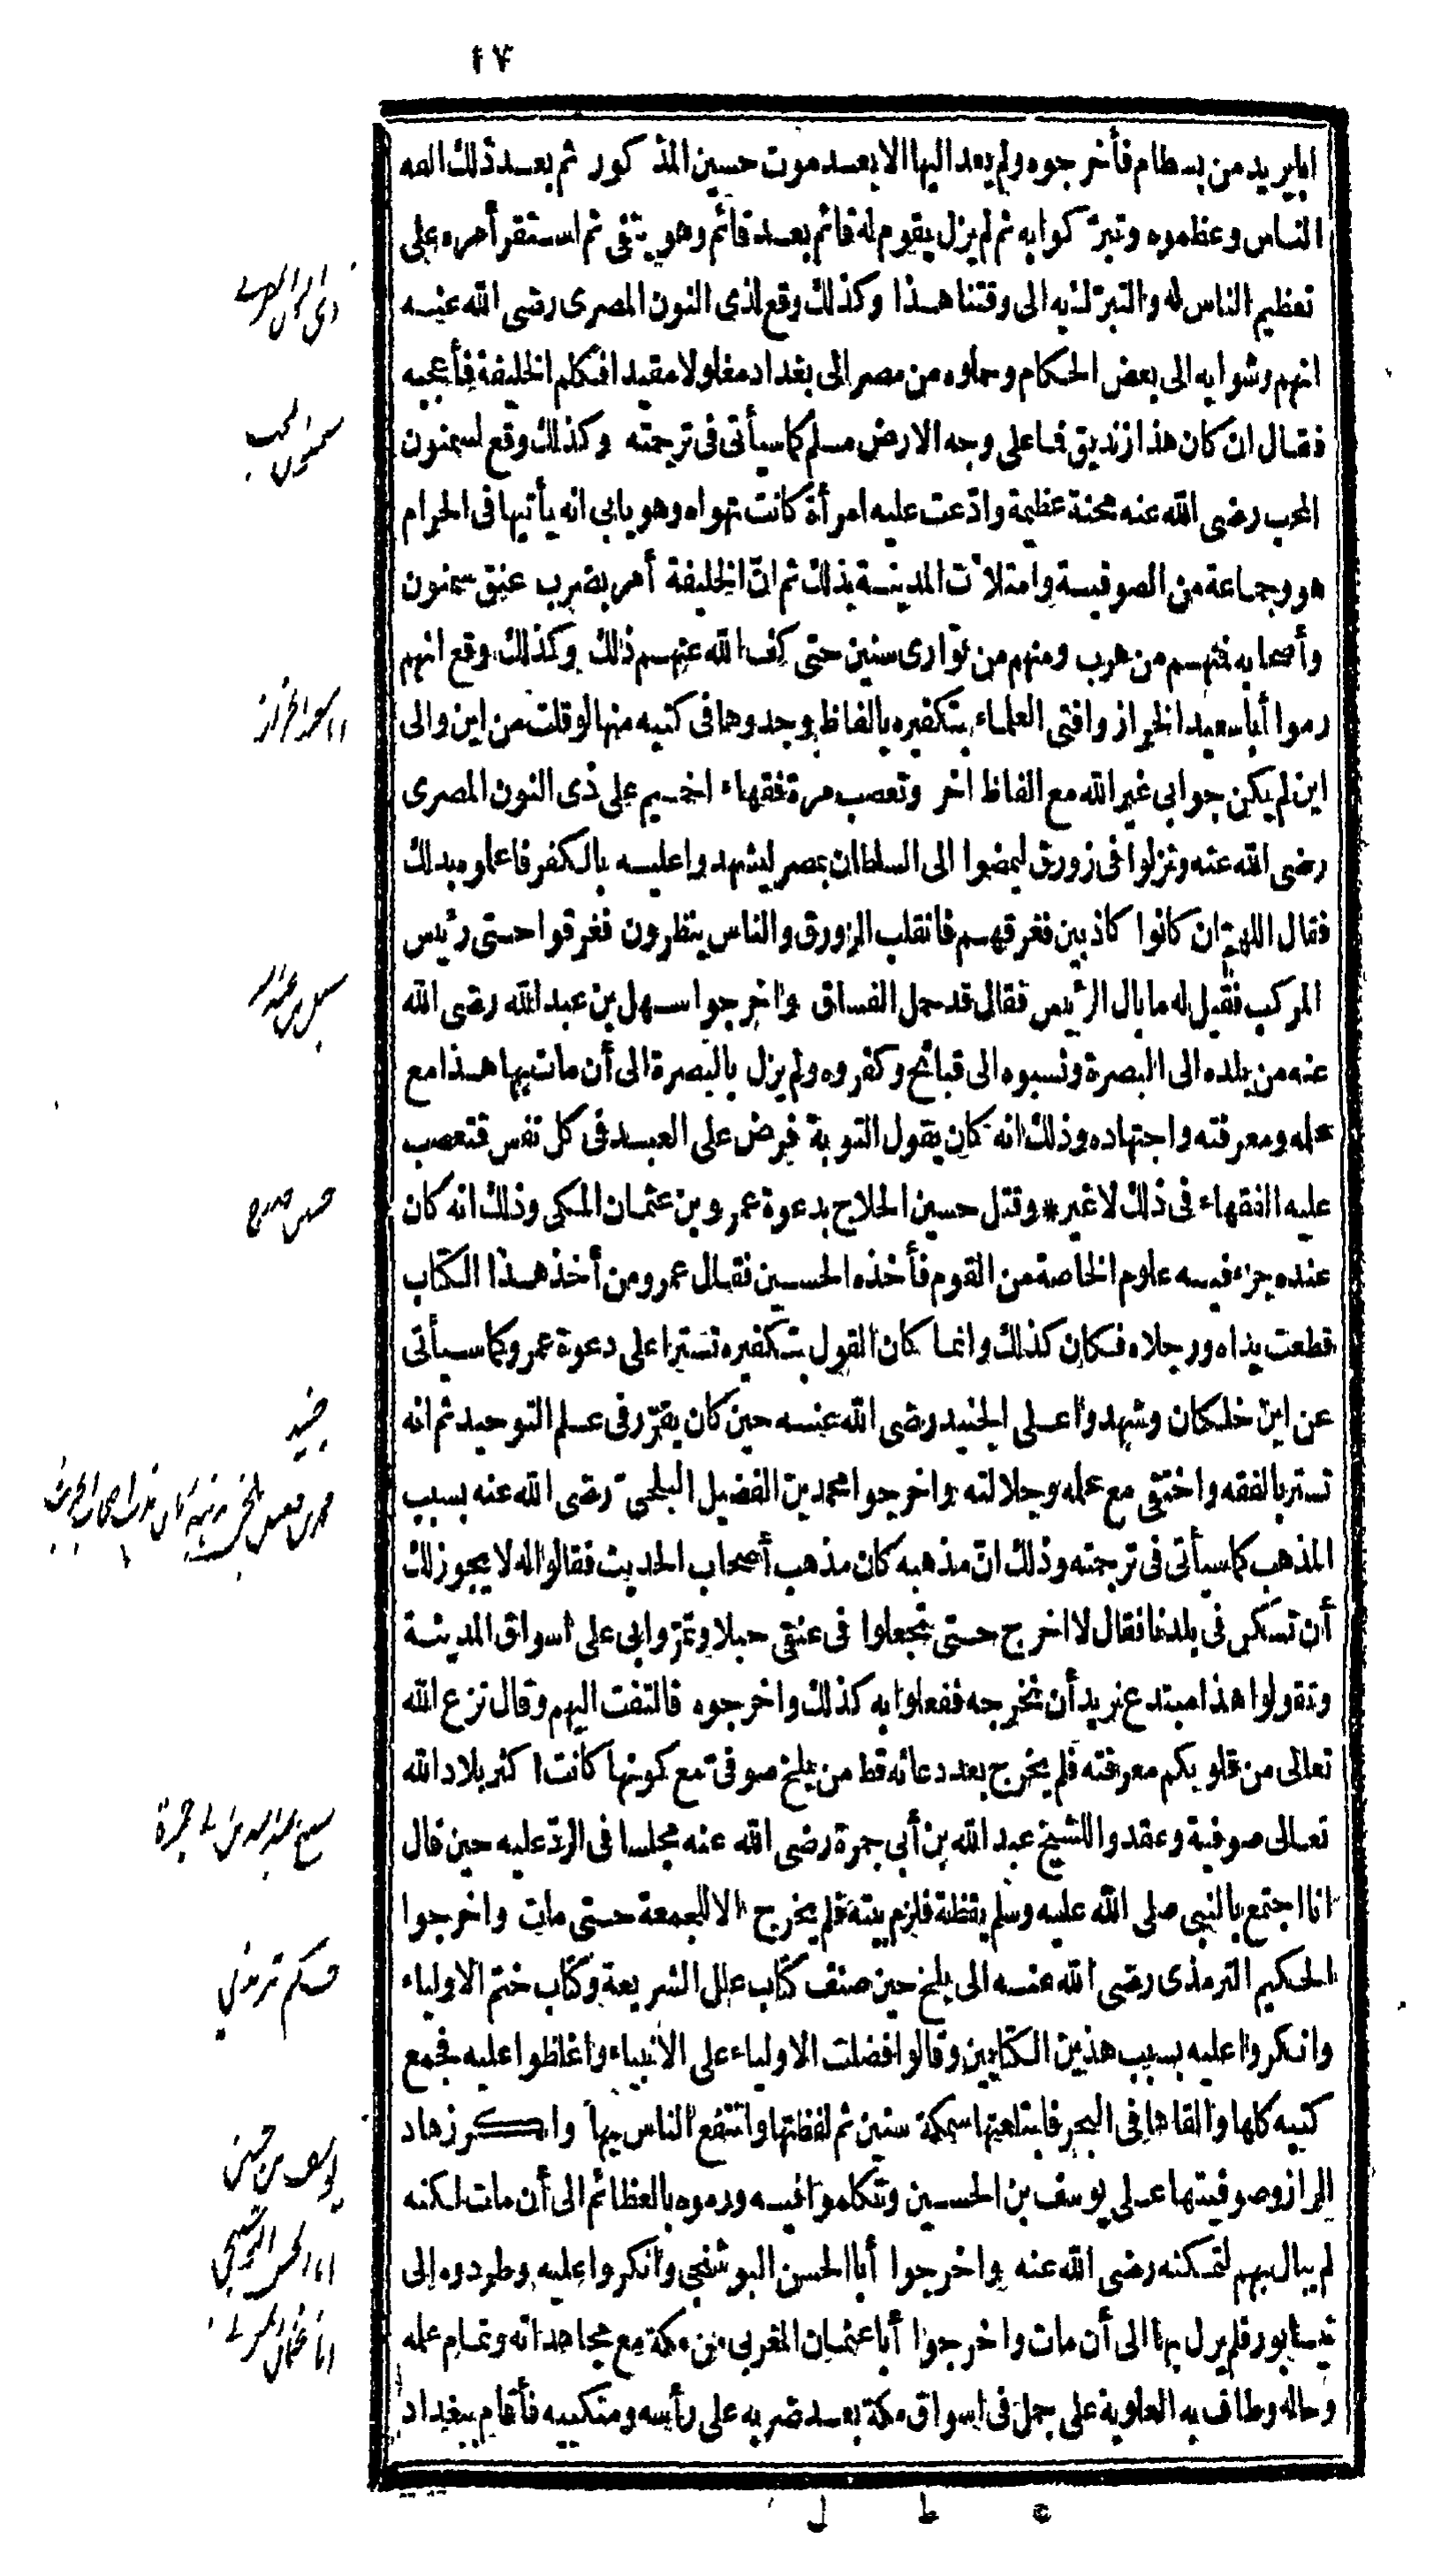 ١٧
أبا يزيد من بسطام فأخرجوه ولم يعد اليها الا بعد موت حسين المذكور ثم بعد ذلك الفه
الناس وعظموه وتبرّكوا به ثم لم يزل يقوم له قائم بعد قائم وهو ينفى ثم استقر أمره على
تعظيم الناس له والتبرّك به الى وقتنا هذا وكذلك وقع لذي النون المصرى رضى الله عنه
انهم وشوا به الى بعض الحكام وحملوه من مصر الى بغداد مغلولا مقيدا فكلم الخليفة فأعجبه
فقال ان كان هذا زنديق فما على وجه الارض مسلم كما سيأتى فى ترجمته وكذلك وقع لسمنون
المحب رضى الله عنه محنة عظيمة وادّعت عليه امرأة كانت تهواه وهو يابى انه يأتيها فى الحرام
هو وجماعة من الصوفية وامتلأت المدينة بذلك ثم انّ الخليفة أمر بضرب عنق سمنون
وأصحابه فمنهم من هرب ومنهم من توارى سنين حتى كف الله عنهم ذلك وكذلك وقع انهم
رموا أبا سعيد الخراز وافتى العلماء بتكفيره بالفاظ وجدوها فى كتبه منها لو قلت من اين والى
اين لم يكن جوابى غير الله مع الفاظ اخر وتعصب مرة فقهاء اخميم على ذى النون المصرى
رضى الله عنه ونزلوا فى زورق ليمضوا الى السلطان بمصر ليشهدوا عليه بالكفر فاعلموه بذلك
فقال اللهمّ ان كانوا كاذبين فغرقهم فانقلب الزورق والناس ينظرون فغرقوا حتى رئيس
المركب فقيل له ما بال الرئيس فقال قد حمل الفساق واخرجوا سهل بن عبد الله رضى الله
عنه من بلده الى البصرة ونسبوه الى قبائح وكفروه ولم يزل بالبصرة الى أن مات بها هذا مع
علمه ومعرفته واجتهاده وذلك انه كان يقول التوبة فرض على العبد فى كل نفس فتعصب
عليه الفقهاء فى ذلك لا غير * وقتل حسين الحلاج بدعوة عمرو بن عثمان المكى وذلك انه كان
عنده جزء فيه علوم الخاصة من القوم فأخذه الحسين فقال عمرو من أخذ هذا الكتاب
قطعت يداه ورجلاه فكان كذلك وانما كان القول بتكفيره تسترا على دعوة عمرو كما سيأتى
عن ابن خلكان وشهدوا على الجنيد رضى الله عنه حين كان يقرّر فى علم التوحيد ثم انه
تستر بالفقه واختفى مع علمه وجلالته واخرجوا محمد بن الفضيل البلخىّ رضى الله عنه بسبب
المذهب كما سيأتى فى ترجمته وذلك انّ مذهبه كان مذهب أصحاب الحديث فقالوا له لا يجوز لك
أن تسكن فى بلدنا فقال لا اخرج حتى تجعلوا فى عنقى حبلا وتمرّوا بى على اسواق المدينة
وتقولوا هذا مبتدع نريد أن نخرجه ففعلوا به كذلك واخرجوه فالتفت اليهم وقال نزع الله
تعالى من قلوبكم معرفته فلم يخرج بعد دعائه قط من بلخ صوفىّ مع كونها كانت اكثر بلاد الله
تعالى صوفية وعقدوا للشيخ عبد الله بن أبى جمرة رضى الله عنه مجلسا فى الردّ عليه حين قال
انا اجتمع بالنبى صلى الله عليه وسلم يقظة فلزم بيته فلم يخرج الا للجمعة حتى مات واخرجوا
الحكيم الترمذى رضى الله عنه الى بلخ حين صنف كتاب علل الشريعة وكتاب ختم الاولياء
وانكروا عليه بسبب هذين الكتابين وقالوا فضلت الاولياء على الانبياء واغلظوا عليه فجمع
كتبه كلها والقاها فى البحر فابتلعتها سمكة سنين ثم لفظتها وانتفع الناس بها وانكر زهاد
الراز وصوفيتها على يوسف بن الحسين وتكلموا فيه ورموه بالعظائم الى أن مات لكنه
لم يبال بهم لتمكنه رضى الله عنه واخرجوا أبا الحسن البوشنجى وانكروا عليه وطردوه الى
نيسابور فلم يزل بها الى أن مات واخرجوا أبا عثمان المغربى من مكة مع مجاهداته وتمام علمه
وحاله وطاف به العلوية على جمل فى اسواق مكة بعد ضربه على رأسه ومنكبيه فأقام ببغداد
ط ل
سمنون المحب
ابا سعيد الخراز
سهل بن عبد الله
حسين حلاج
جنيد
شيخ عبد الله بن ابى جمرة
حكيم ترمذي
يوسف بن حسين
ابا الحسن البوشنجي